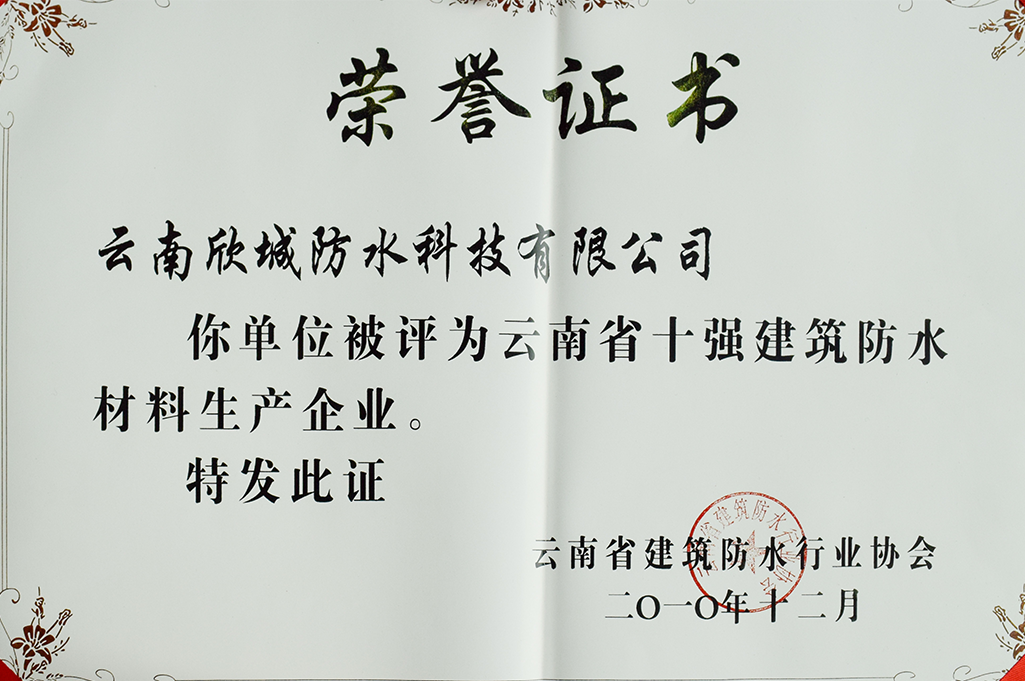 荣誉证书
云南欣城防水科技有限公司
你单位被评为云南省十强建筑防水
材料生产企业。
特发此证
云南省建筑防水行业协会
二〇一〇年十二月
云南省建筑防水行业协会